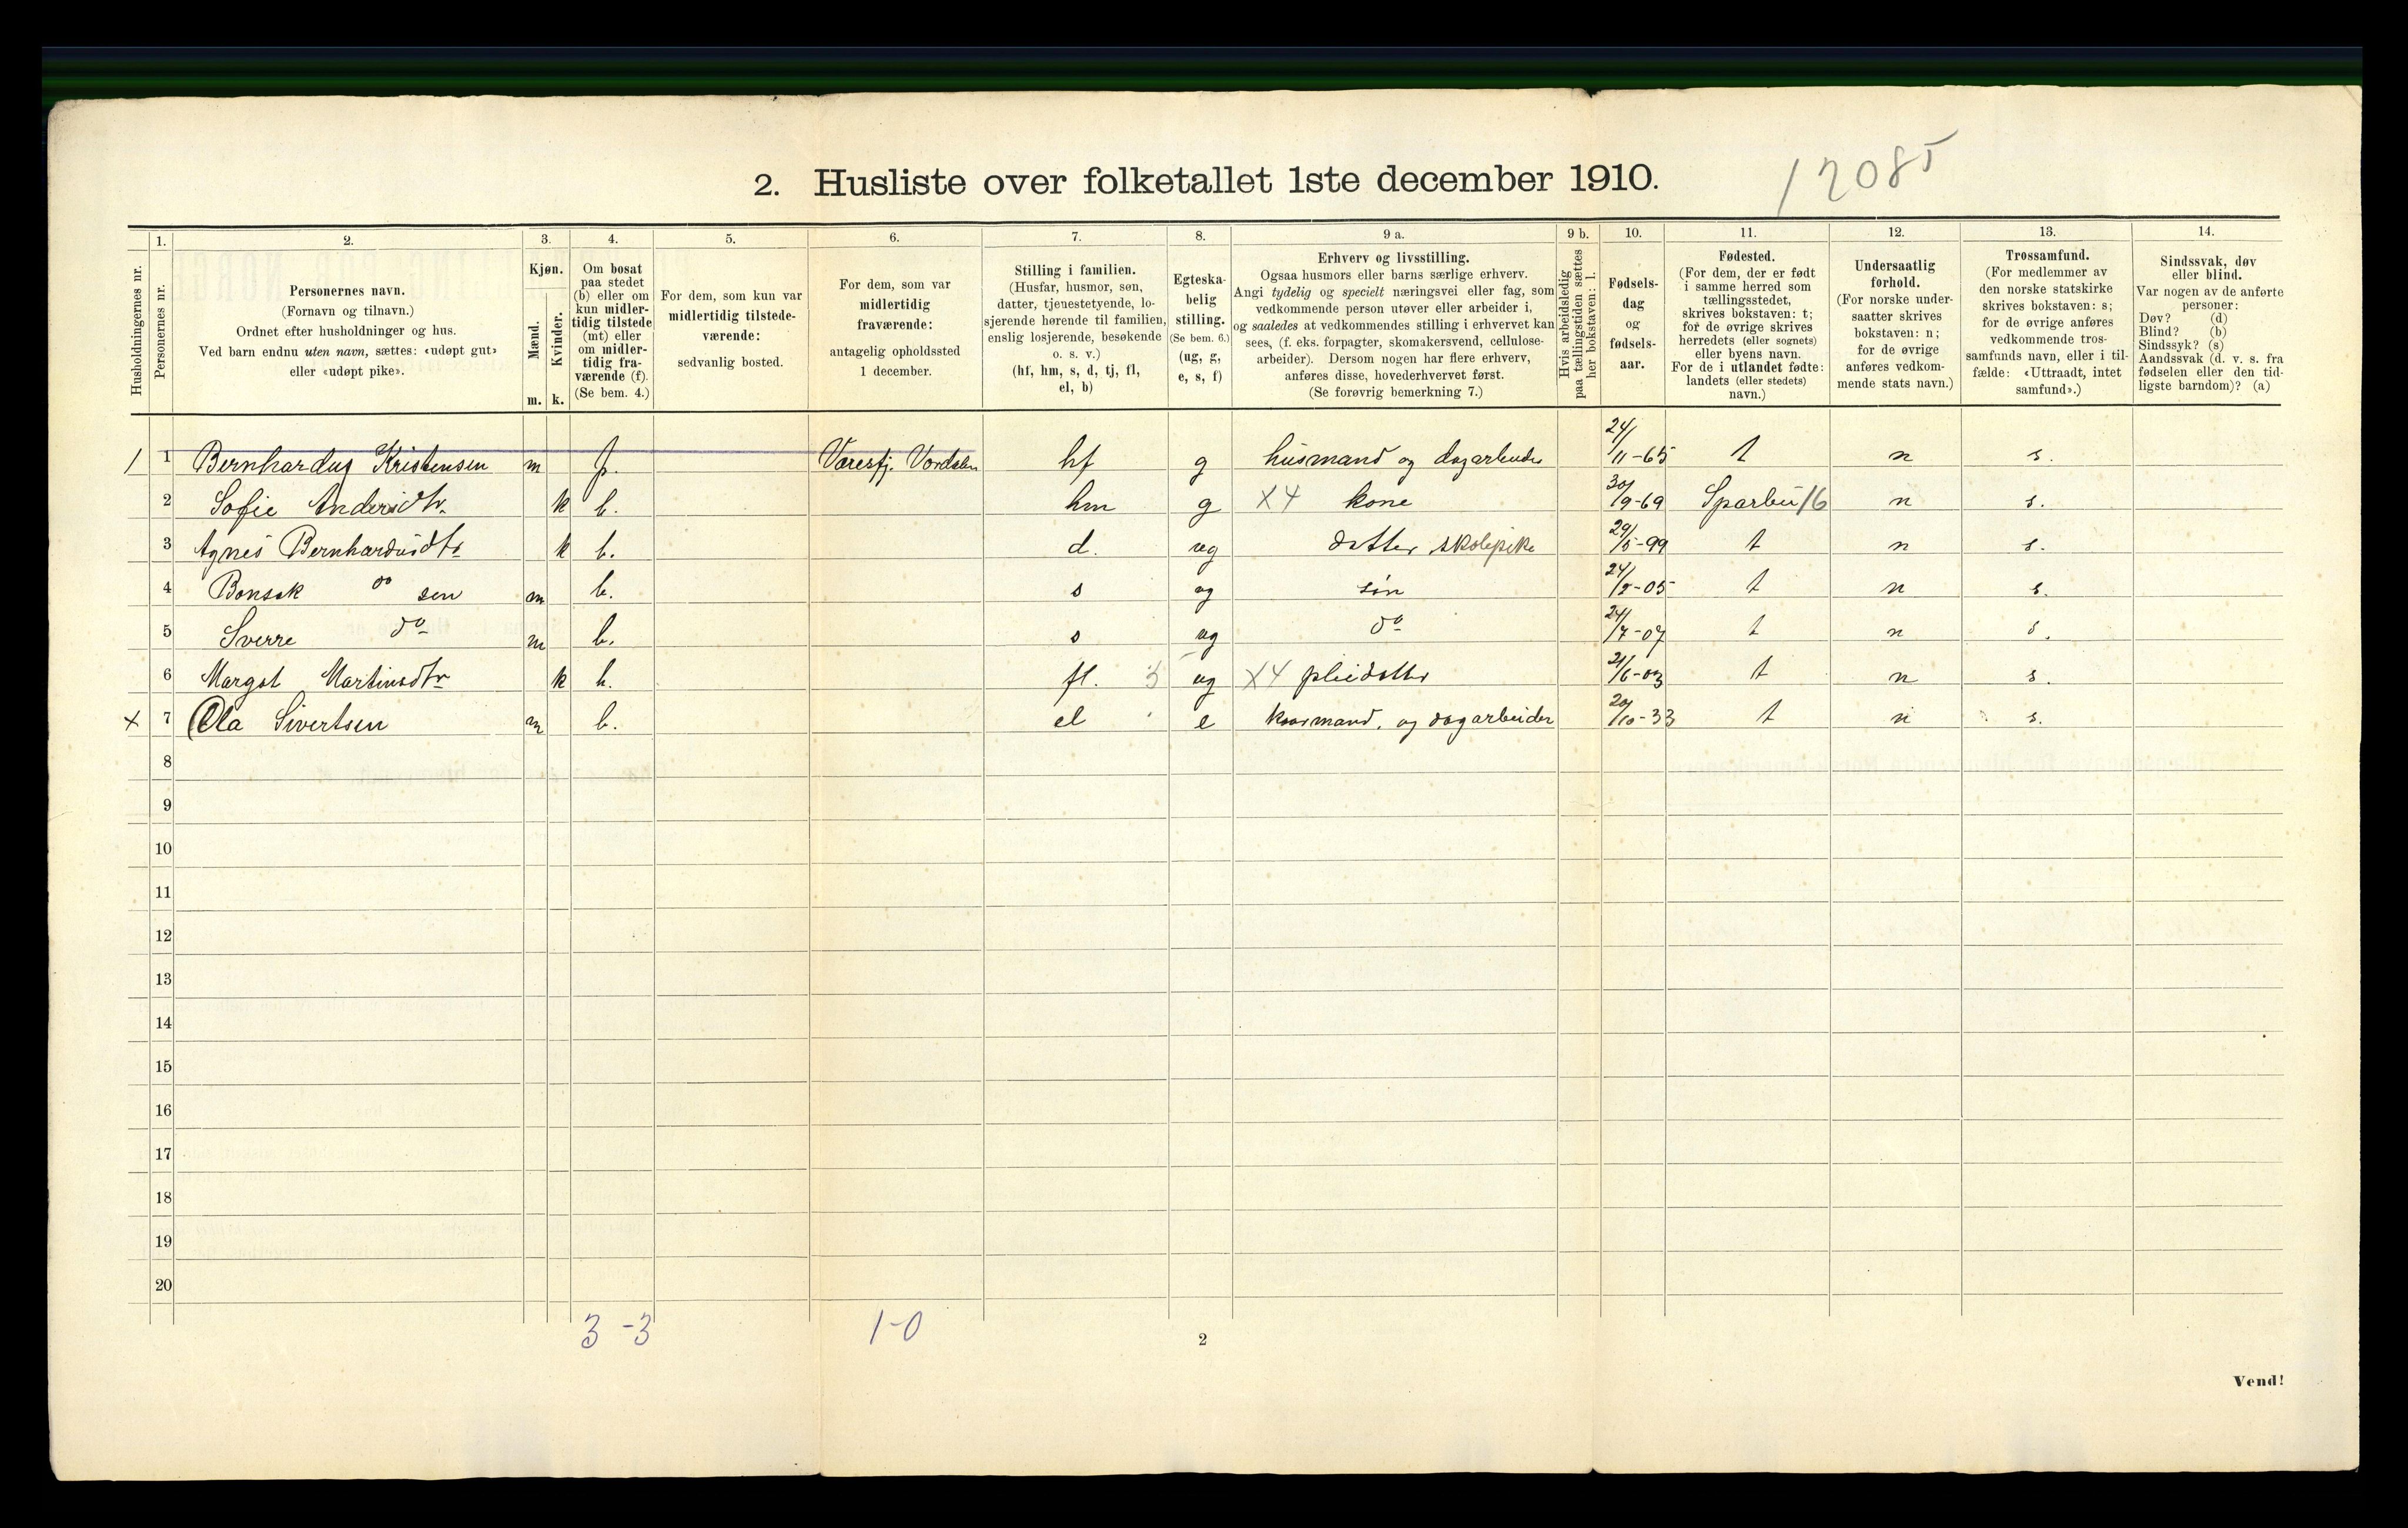 2. Husliste over folketallet 1ste december 1910.
12085
1. 2. 3. 4. 5. 6. 7. 8. 9 a. 9 b. 10. 11. 12. 13. 14.
Husholdningernes nr.
Personernes nr.
Personernes navn.
(Fornavn og tilnavn.)
Ordnet efter husholdninger og hus.
Ved barn endnu uten navn, sættes: «udøpt gut»
eller «udøpt pike».
Kjøn.
Mænd.
Kvinder.
m. k.
Om bosat
paa stedet
(b) eller om
kun midler-
tidig tilstede
(mt) eller
om midler-
tidig fra-
værende (f).
(Se bem. 4.)
For dem, som kun var
midlertidig tilstede-
værende:
sedvanlig bosted.
For dem, som var
midlertidig
fraværende:
antagelig opholdssted
1 december.
Stilling i familien.
(Husfar, husmor, søn,
datter, tjenestetyende, lo-
sjerende hørende til familien,
enslig losjerende, besøkende
o. s. v.)
(hf, hm, s, d, tj, fl,
el, b)
Egteska-
belig
stilling.
(Se bem. 6.)
(ug, g,
e, s, f)
Erhverv og livsstilling.
Ogsaa husmors eller barns særlige erhverv.
Angi tydelig og specielt næringsvei eller fag, som
vedkommende person utøver eller arbeider i,
og saaledes at vedkommendes stilling i erhvervet kan
sees, (f. eks. forpagter, skomakersvend, cellulose-
arbeider). Dersom nogen har flere erhverv,
anføres disse, hovederhvervet først.
(Se forøvrig bemerkning 7.)
Hvis arbeidsledig
paa tællingstiden sættes
her bokstaven: l.
Fødsels-
dag
og
fødsels-
aar.
Fødested.
(For dem, der er født
i samme herred som
tællingsstedet,
skrives bokstaven: t;
for de øvrige skrives
herredets (eller sognets)
eller byens navn.
For de i utlandet fødte:
landets (eller stedets)
navn.)
Undersaatlig
forhold.
(For norske under-
saatter skrives
bokstaven: n;
for de øvrige
anføres vedkom-
mende stats navn.)
Trossamfund.
(For medlemmer av
den norske statskirke
skrives bokstaven: s;
for de øvrige anføres
vedkommende tros-
samfunds navn, eller i til-
fælde: «Uttraadt, intet
samfund».)
Sindssvak, døv
eller blind.
Var nogen av de anførte
personer:
Døv? (d)
Blind? (b)
Sindssyk? (s)
Aandssvak (d. v. s. fra
fødselen eller den tid-
ligste barndom)? (a)
1 1 Bernhardus Kristensen m f. Værdalen hf g husmand og dagarbeider 24/11-65 t n s.
2 Sofie Andersdtr. k b. hm g X4 kone 30/9-69 Sparbu 16 n s.
3 Agnes Bernhardusdtr k b. d. ug datter skolepike 29/5-99 t n s.
4 Bonsak do sen m b. s ug søn 24/2-05 t n s.
5 Sverre do m b. s ug do 24/7-07 t n s.
6 Margot Martinsdtr k b. fl. 3 ug X4 pleidatter 21/6-03 t n s.
x 7 Ola Sivertsen m b. el e kaarmand, og dagarbeider 20/10-33 t n s.
8
9
10
11
12
13
14
15
16
17
18
19
20
3 -3 1-0
2
Vend!